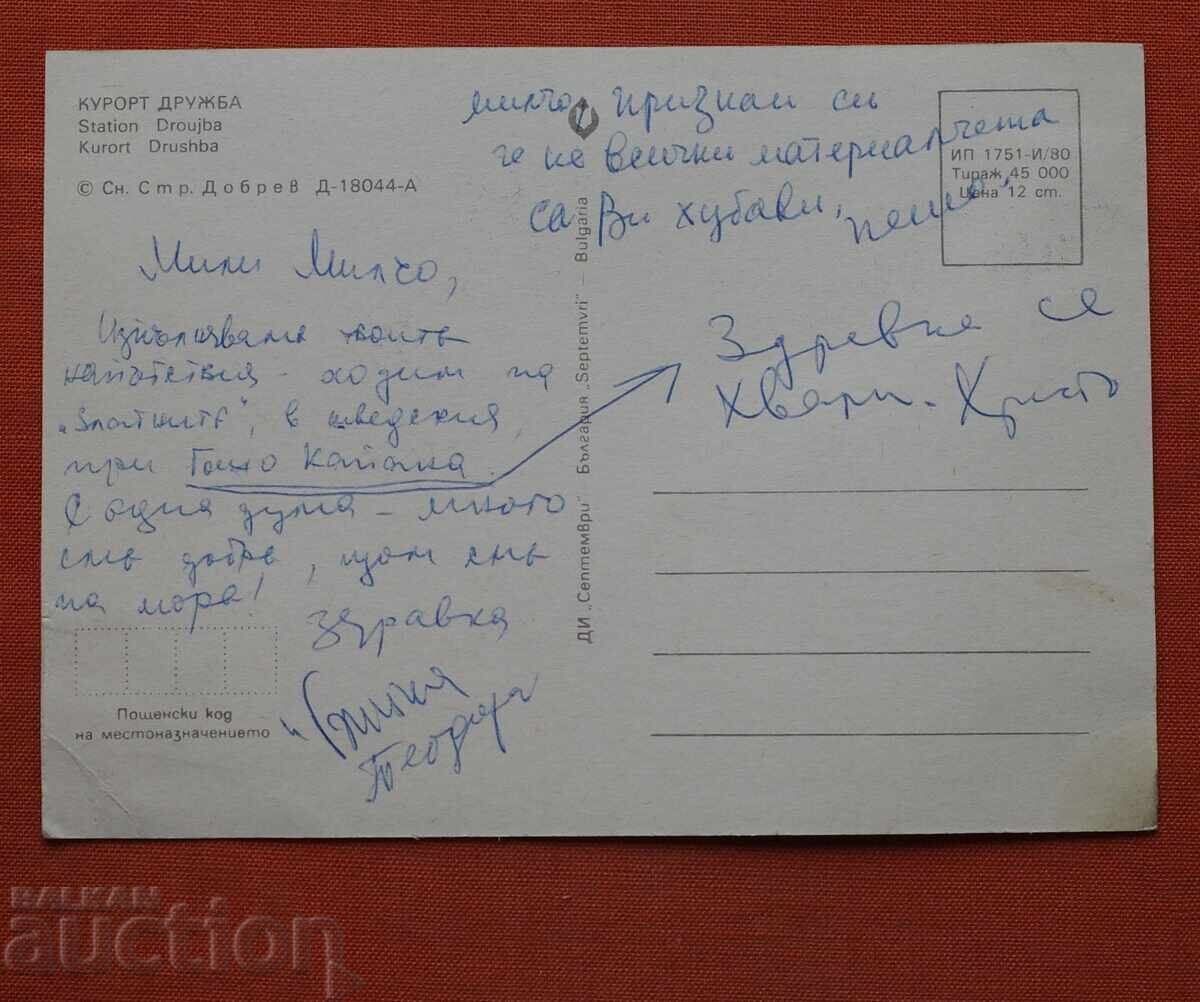 КУРОРТ ДРУЖБА
Station Droujba
Kurort Drushba
© Сн. Стр. Добрев Д-18044-А
Мили Милчо,
Изпълняваме твоите
напътствия - ходим на
„Златните", в шведския,
при Гашо Капанка.
С една дума - много
сме добре, щом сме
на море!
Здравка
Теодора
Пощенски код
на местоназначението
ДИ „Септември" България „Septemvri" — Bulgaria
Милчо, признай си
че не всички материалчета
са Ви хубави,
Пешо
ИП 1751-И/80
Тираж 45 000
Цена 12 ст.
Здравка се
хвали - Христо
BALKAN
auction